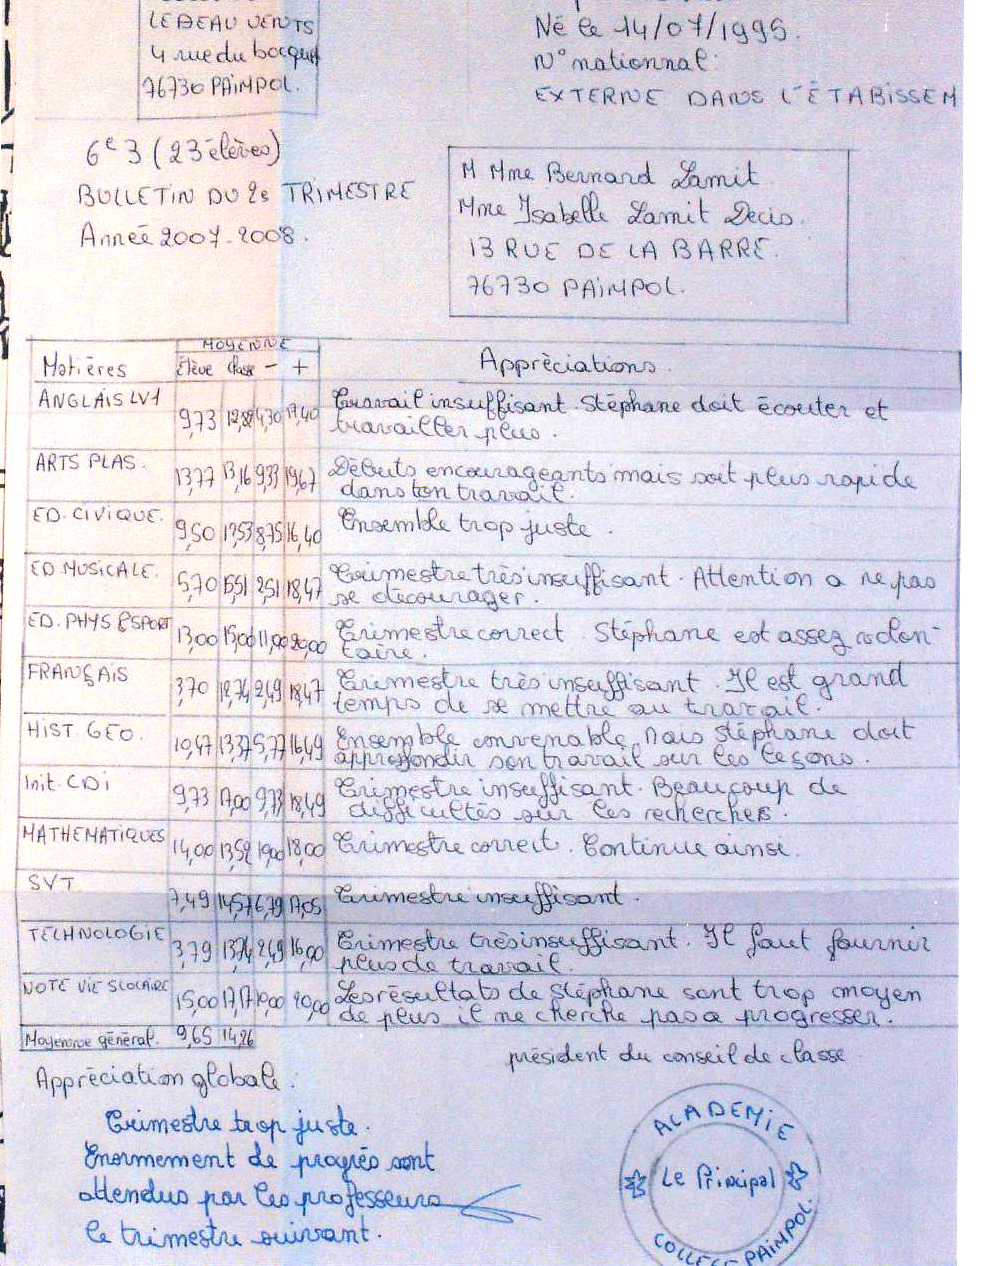 LEBEAU VENTS
4 rue du bocquet
76730 PAIMPOL.
Né le 14/07/1995.
N° nationnal:
EXTERNE DANS L'ÉTABISSEM
6e 3 (23 élèves)
BULLETIN DU 2e TRIMESTRE
Année 2007-2008.
M Mme Bernard Lamit
Mme Isabelle Lamit Decis.
13 RUE DE LA BARRE.
76730 PAIMPOL.
MOYENNE
Matières Élève Classe - + Appréciations.
ANGLAIS LV1 9,73 4,30 17,40 Travail insuffisant. Stéphane doit écouter et
travailler plus.
ARTS PLAS. 13,77 13,16 9,33 19,67 Débuts encourageants mais soit plus rapide
dans ton travail.
ED. CIVIQUE. 9,50 17,53 8,75 16,40 Ensemble trop juste.
ED MUSICALE. 5,70 15,51 2,51 18,47 Trimestre très insuffisant. Attention a ne pas
se décourager.
ED. PHYS & SPORT 13,00 15,00 11,00 20,00 Trimestre correct. Stéphane est assez
taire.
FRANÇAIS 3,70 12,74 2,49 18,47 Trimestre très insuffisant. Il est grand
temps de se mettre au travail.
HIST. GEO. 10,47 13,37 5,77 16,49 Ensemble convenable, Mais Stéphane doit
approfondir son travail sur les leçons.
Init. CDI 9,73 17,00 9,73 18,49 Trimestre insuffisant. Beaucoup de
difficultés sur les recherches.
MATHEMATIQUES 14,00 13,52 10,00 18,00 Trimestre correct. Continue ainsi.
SVT 7,49 14,57 6,79 17,05 Trimestre insuffisant.
TECHNOLOGIE 3,79 13,74 2,49 16,00 Trimestre très insuffisant. Il faut fournir
plus de travail.
NOTE VIE SCOLAIRE 15,00 17,17 10,00 20,00 Les résultats de Stéphane sont trop moyen
de plus il ne cherche pas a progresser.
Moyenne général. 9,65 14,26
président du conseil de classe
Appréciation globale:
Trimestre trop juste.
Enormement de progrés sont
attendus par les professeurs
le trimestre suivant.
ACADEMIE
Le Principal
COLLEGE PAIMPOL.